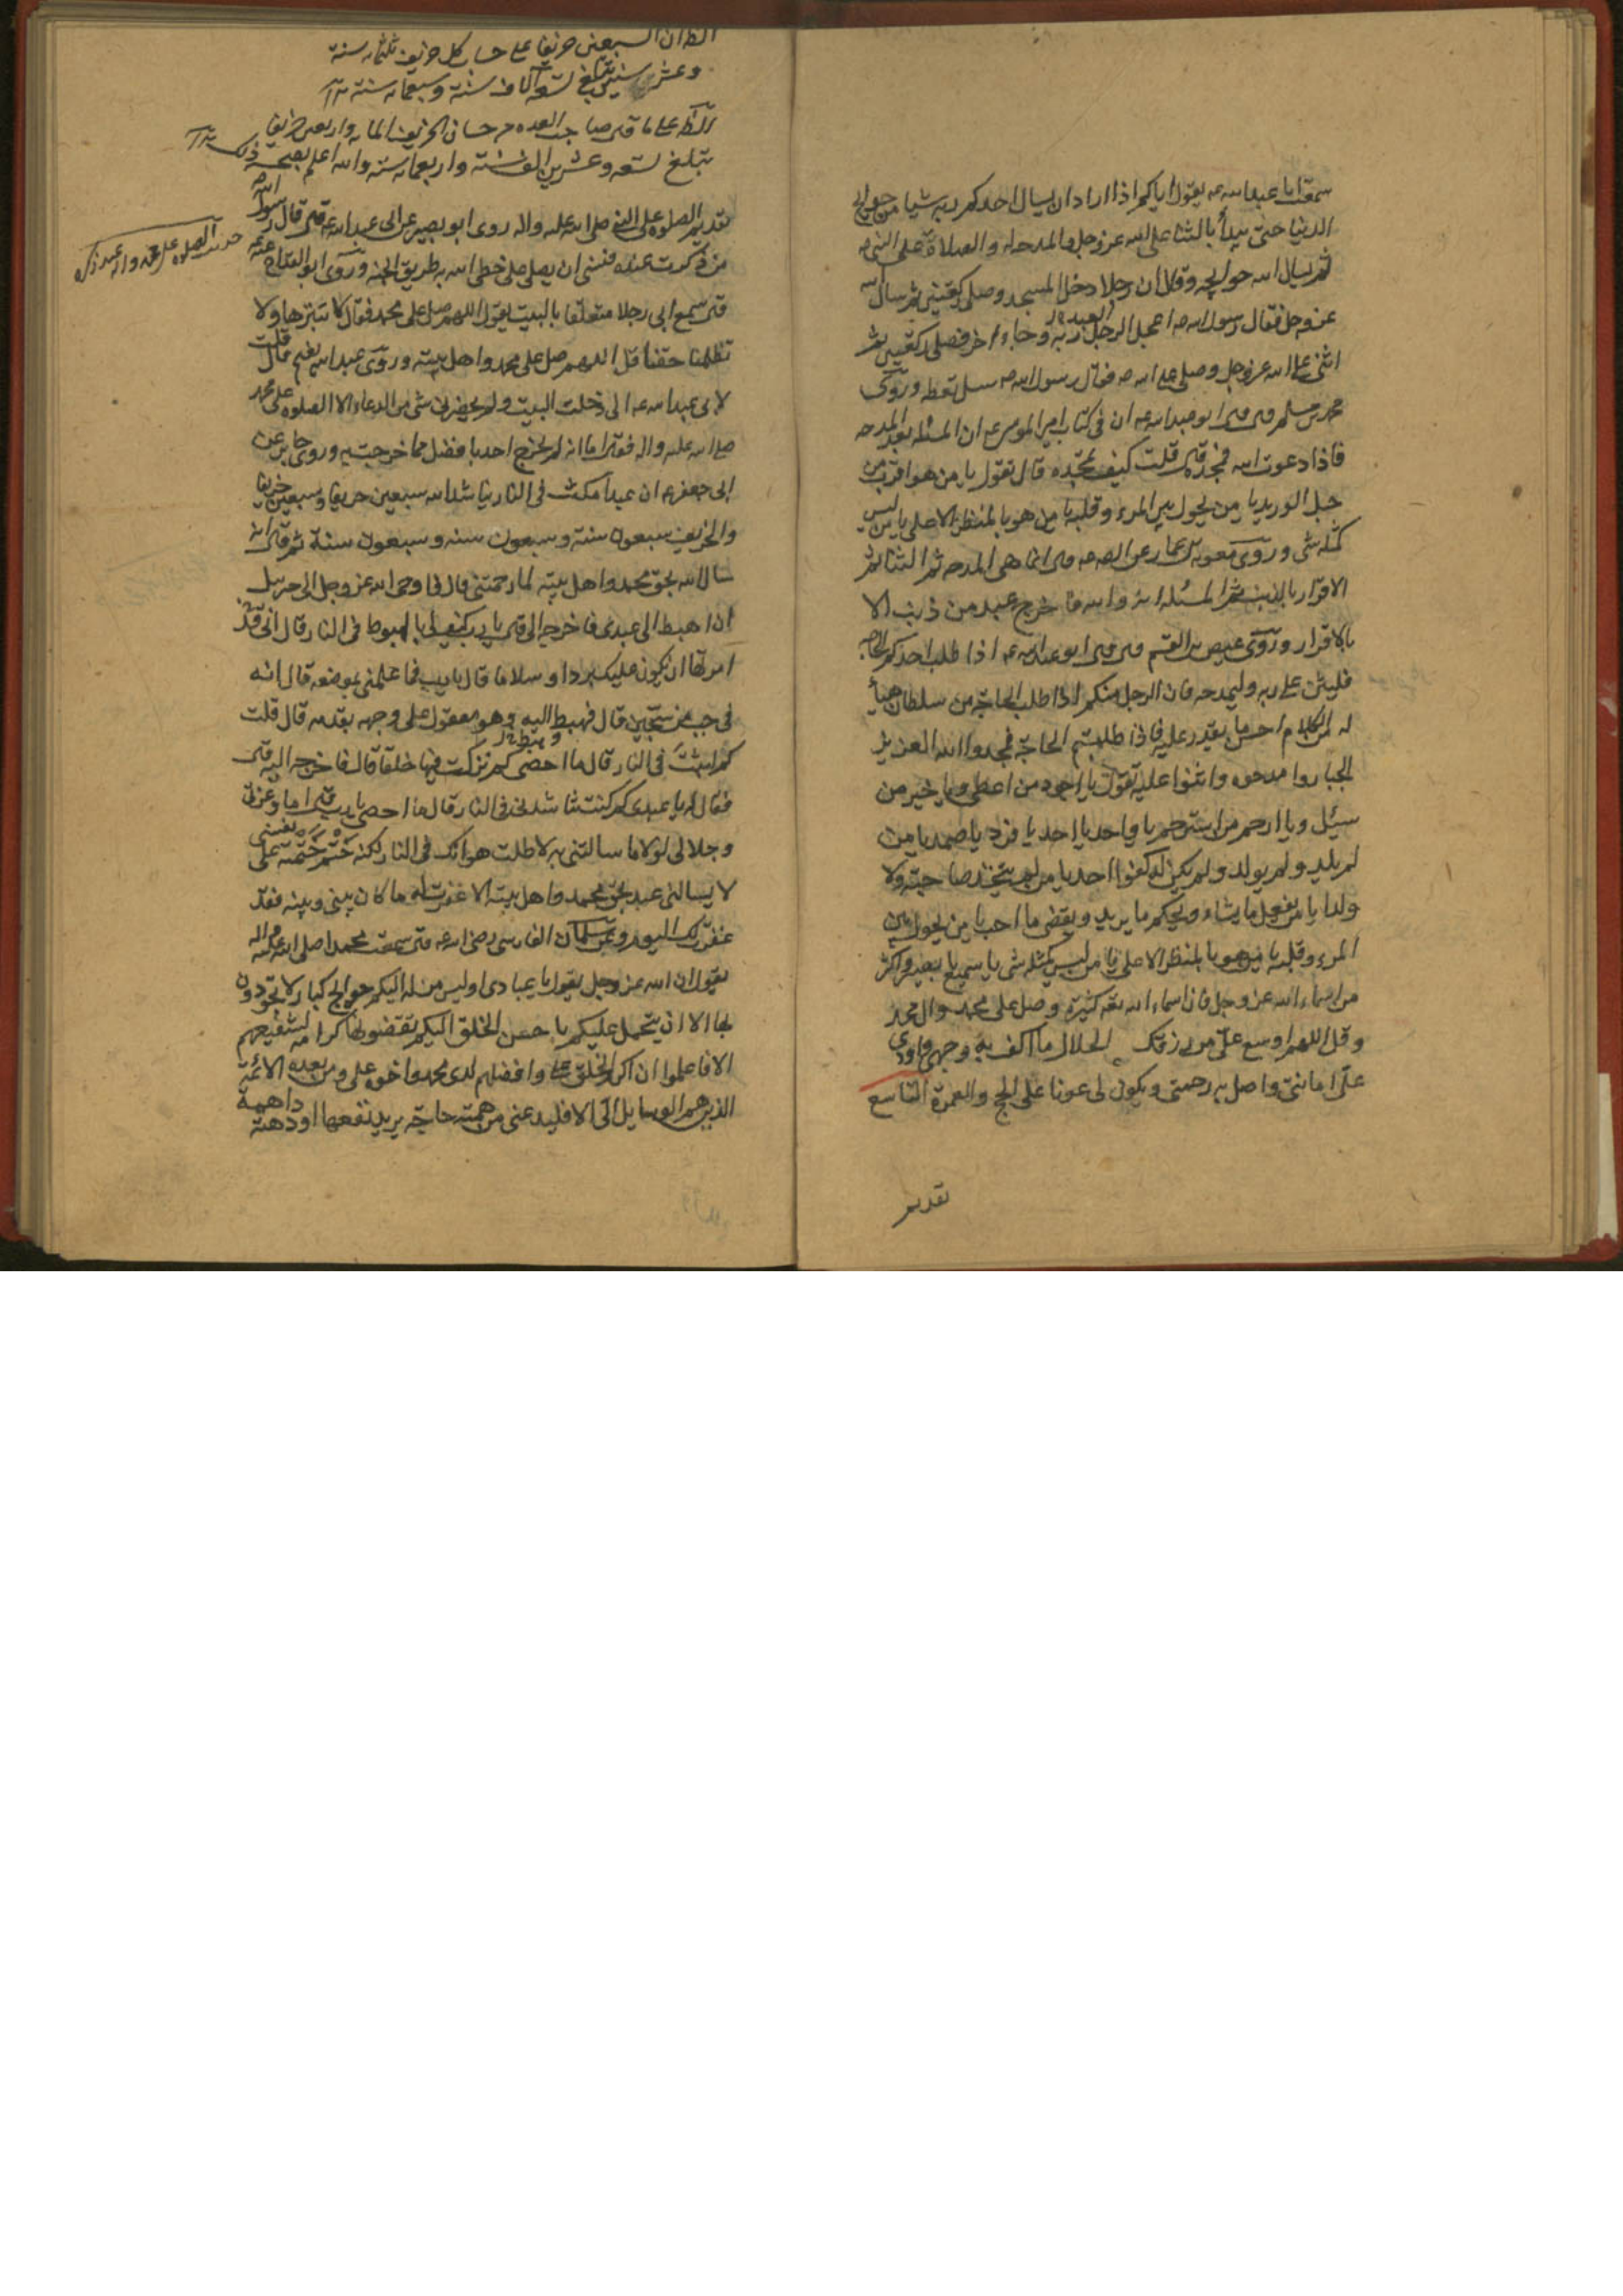 سمعت ابا عبد الله عه يقول اياكم اذا اراد ان يسال احدكم ربه شيئا من حوايج
الدنيا حتى يبدأ بالثنا على الله عز وجل والمدحه له والصلاة على النبي ص
ثم يسال الله حوايجه وقال ان رجلا دخل المسجد وصلى ركعتين ثم سال الله
عز وجل فقال رسول الله ص اعجل العبد ربه وجاء آخر فصلى ركعتين ثم
اثنى على الله عز وجل وصلى على فقال رسول الله ص سل تعطه وروى
محمد بن مسلم قال قال ابو عبد الله عه ان في كتاب امير المومنين ع ان المسئله بعد المدحه
فاذا دعوت الله فمجده قال قلت كيف نمجده قال تقول يا من هو اقرب من
حبل الوريد يا من يحول بين المرء وقلبه يا من هو بالمنظر الاعلى يا من ليس
كمثله شى وروى معويه بن عمار عن الصه قال انما هى المدحه ثم الثنا ثم
الاقرار بالذنب ثم المسئله انه والله ما خرج عبد من ذنب الا
بالاقرار وروى عيص بن القسم قال قال ابو عبد الله عه اذا طلب احدكم الحاجه
فليثن على ربه وليمدحه فان الرجل منكم اذا طلب الحاجة من سلطان هيأ
له من الكلام احسن ما يقدر عليه فاذا طلبتم الحاجة فمجدوا الله العزيز
الجبار وامدحوه واثنوا عليه تقول يا اجود من اعطى ويا خير من
سيئل ويا ارحم من استرحم يا واحد يا احد يا فرد يا صمد يا من
لم يلد ولم يولد ولم يكن له كفوا احد يا من لم يتخذ صاحبة ولا
ولدا يا من يفعل ما يشاء ويحكم ما يريد ويقضى ما احب يا من يحول بين
المرء وقلبه يا من هو بالمنظر الاعلى يا من ليس كمثله شى يا سميع يا بصير واكثر
من اسماء الله عز وجل فان اسماء الله تعه كثيرة وصل على محمد وال محمد
وقل اللهم اوسع على من رزقك الحلال ما اكف به وجهى واودى
عنى امانتى واصل به رحمتى ويكون لى عونا على الحج والعمرة التاسع
تقديم
ان السبعين خريفا على حساب كل خريف ثلثمائه سنة
وعشر سنين تبلغ تسعة آلاف سنة وسبعمائه سنة
على ما قال صاحب العده من حسان الخريف المايه واربعين خريفا
تبلغ تسعه وعشرين الف سنة واربعمائه سنه والله اعلم بصحة ذلك
تقديم الصلوه على النبى صلى الله عليه واله روى ابو بصير عن ابى عبد الله عه قال قال رسول الله ص
من ذكرت عنده فنسى ان يصلى على خطى الله به طريق الجنه وروى ابو القداح عنه عه
قال سمع ابى رجلا متعلقا بالبيت يقول اللهم صل على محمد فقال لا تبترها ولا
تظلمنا حقنا قل اللهم صل على محمد واهل بيته وروى عبد الله بن نعيم قال قلت
لابى عبد الله عه انى دخلت البيت ولم يحضرنى شى من الدعاء الا الصلوه على محمد
صلى الله عليه واله فقال اما انه لم يخرج احد بافضل مما خرجت به وروى جابر عن
ابى جعفر ع ان عبدا مكث فى النار يناشد الله سبعين خريفا وسبعين خريفا
والخريف سبعون سنة وسبعون سنه وسبعون سنة ثم قال انه
سال الله بحق محمد واهل بيته لما رحمتنى قال فاوحى الله عز وجل الى جبرئيل
ان اهبط الى عبدى فاخرجه الى قال يا رب كيف لى بالهبوط فى النار قال انى قد
امرتها ان تكون عليك بردا وسلاما قال يا رب فما علمنى بموضعه قال انه
فى جب من سجين قال فهبط اليه وهو معقول على وجهه بقدمه قال قلت
كم لبثت فى النار قال ما احصى كم تركت فيها خلقا قال فاخرجه اليه قال
فقال له يا عبدى كم كنت تناشدنى فى النار قال ما احصى يا رب قال اما وعزتى
وجلالى لولا ما سالتنى به لاطلت هوانك فى النار لكنه حتم حتمته على نفسى
لا يسالنى عبد بحق محمد واهل بيته الا غفرت له ما كان بينى وبينه فقد
غفرت لك اليوم وعن سلمان الفارسى رضى الله عه قال سمعت محمدا صلى الله عليه واله
يقول ان الله عز وجل يقول يا عبادى اوليس من له اليكم حوايج كبار لا تجودون
بها الا ان يتحمل عليكم باحسن الخلق اليكم تقضونها كرامه لشفيعهم
الا فاعلموا ان اكرم الخلق على وافضلهم لدى محمد واخوه على ومن بعده الائمة
الذين هم الوسايل الى الا فليدعنى من همته حاجة يريد نفعها او دهته داهية
الصلوه على محمد واله عند ذكره